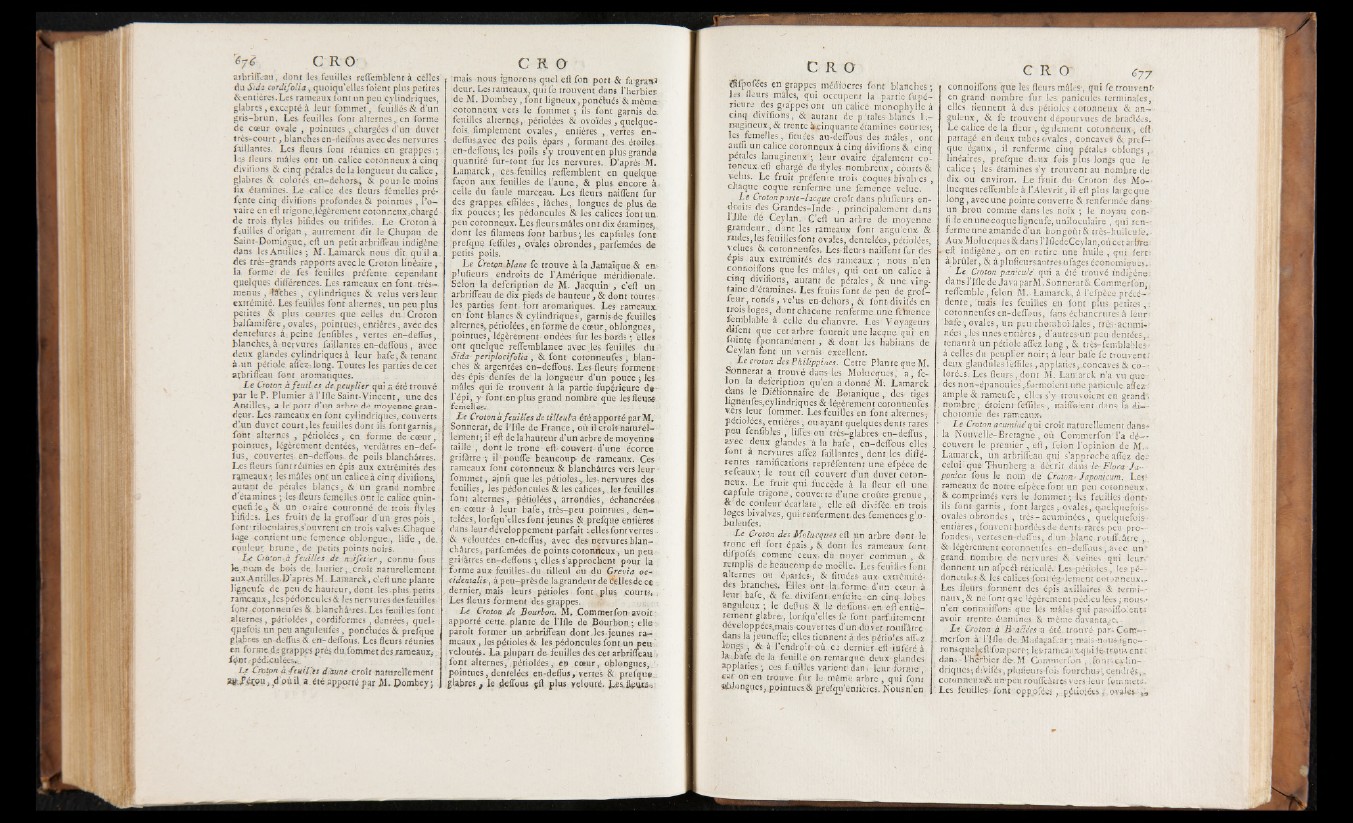 676 CRO
arbrisseau, dont les feuilles ressemblent à celles
du Sida cordifolia, quoiqu'elles soient plus petites
& entières. Les rameaux sont un peu cylindriques,
glabres, excepté à leur sommet, feuillés & d'un
gris-brun. Les feuilles sont alternes, en forme
de cœur ovale, pointues, chargées d'un duvet
très-court, blanches en-dessous avec des nervures
saillantes. Les fleurs sont réunies en grappes;
les fleurs mâles ont un calice cotonneux à cinq
divisions & cinq pétales de la longueur du calice,
glabres & colorés en-dehors, & pour le moins
six étamines. Le calice des fleurs femelles pré-
sente cinq divisions profondes & pointues, l'o-
vaire en est trigone, légèrement cotonneux, chargé
de trois styles bifides ou trifides. Le Croton à
feuilles d'origan, autrement dit le Chupon de
Saint-Domingue, est un petit arbrisseau indigène
dans les Antilles; M. Lamarck nous dit qu'il a
des très-grands rapports avec le Croton linéaire,
la forme de ses feuilles présente cependant
quelques différences. Les rameaux en sont très-
menus, lâches, cylindriques & velus vers leur
extrémité. Les feuilles sont alternes, un peu plus
petites & plus courtes que celles du Croton
balsamifère, ovales, pointues, entières, avec des
dentelures à peine sensibles, vertes en-dessus,
blanches, à nervures saillantes en-dessous, avec
deux glandes cylindriques à leur base, & tenant
à un pétiole assez-long. Toutes les parties de cet
arbrisseau sont aromatiques.
Le Croton à feuilles de peuplier qui a été trouvé
par le P. Plumier à l'Isle Saint-Vincent, une des
Antilles, a le port d'un arbre de moyenne gran-
deur. Les rameaux en sont cylindriques, couverts
d'un duvet court, les feuilles dont ils sont garnis,
sont alternes, pétiolées, en forme de cœur,
pointues, légèrement dentées, verdâtres en-des-
sus, couvertes en-dessous de poils blanchâtres.
Les fleurs sont réunies en épis aux extrémités des
rameaux; les mâles ont un calice à cinq divisions,
autant de pétales blancs, & un grand nombre
d'étamines; les fleurs femelles ont le calice quin-
quefide, & un ovaire couronné de trois styles
bifides. Les fruits de la grosseur d'un gros pois,
sont triloculaires, s'ouvrent en trois valves. Chaque
loge contient une semence oblongue, lisse, de
couleur brune, de petits points noirs.
Le Croton à feuilles de noisetier, connu sous
le nom de bois de laurier, croît naturellement
aux Antilles. D'après M. Lamarck, c'est une plante
ligneuse de peu de hauteur, dont les plus petits
rameaux, les pédoncules & les nervures des feuilles
sont cotonneuses & blanchâtres. Les feuilles sont
alternes, pétiolées, cordiformes, dentées, quel-
quefois un peu anguleuses, ponctuées & presque
glabres en-dessus & en-dessous. Les fleurs réunies
en forme de grappes près du sommet des rameaux,
sont pédiculées.
Le Croton à feuilles d'aune croît naturellement
au Pérou, d'où il a été apporté par M. Dombey;
CRO
mais nous ignorons quel est son port & sa gran-
deur. Les rameaux, qui se trouvent dans l'herbier
de M. Dombey, sont ligneux, ponctués & même
cotonneux vers le sommet; ils sont garnis de
feuilles alternes, pétiolées & ovoïdes, quelque-
fois simplement ovales, entières, vertes en-
dessus avec des poils épars, formant des étoiles
en-dessous; les poils s'y trouvent en plus grande
quantité sur-tout sur les nervures. D'après M.
Lamarck, ces feuilles ressemblent en quelque
façon aux feuilles de l'aune, & plus encore à
celle du saule marceau. Les fleurs naissent sur
des grappes effilées, lâches, longues de plus de
six pouces; les pédoncules & les calices sont un
peu cotonneux. Les fleurs mâles ont dix étamines,
dont les filamens sont barbus; les capsules sont
presque sessiles, ovales obrondes, parsemées de
petits poils.
Le Croton blanc se trouve à la Jamaïque & en
plusieurs endroits de l'Amérique méridionale.
Selon la description de M. Jacquin, c'est un
arbrisseau de dix pieds de hauteur, & dont toutes
les parties sont fort aromatiques. Les rameaux
en sont blancs & cylindriques, garnis de feuilles
alternes, pétiolées, en forme de cœur, oblongues,
pointues, légèrement ondées sur les bords; elles
ont quelque ressemblance avec les feuilles du
Sida periplocifolia, & sont cotonneuses, blan-
ches & argentées en-dessous. Les fleurs forment
des épis denses de la longueur d'un pouce; les
mâles qui se trouvent à la partie supérieure de
l'épi, y sont en plus grand nombre que les fleurs
femelles.
Le Croton à feuilles de tilleul a été apporté par M.
Sonnerat, de l'Isle de France, où il croît naturel-
lement; il est de la hauteur d'un arbre de moyenne
taille, dont le tronc est couvert d'une écorce
grisâtre; il pousse beaucoup de rameaux. Ces
rameaux sont cotonneux & blanchâtres vers leur
sommet, ainsi que les pétioles, les nervures des
feuilles, les pédoncules & les calices, les feuilles
sont alternes, pétiolées, arrondies, échancrées
en cœur à leur base, très-peu pointues, den-
telées, lorsqu'elles sont jeunes & presque entières
dans leur développement parfait: elles sont vertes
& veloutées en-dessus, avec des nervures blan-
châtres, parsemées de points cotonneux, un peu
grisâtres en-dessous; elles s'approchent pour la
forme aux feuilles du tilleul ou du Grevia oc-
cidentalis, à peu-près de la grandeur de celles de ce
dernier, mais leurs pétioles sont plus courts.
Les fleurs forment des grappes.
Le Croton de Bourbon. M. Commerson avoit
apporté cette plante de l'Isle de Bourbon; elle
paroît former un arbrisseau dont les jeunes ra-
meaux, les pétioles & les pédoncules sont un peu
veloutés. La plupart de feuilles des cet arbrisseau
sont alternes, pétiolées, en cœur, oblongues,
pointues, dentelées en-dessus, vertes & presque
glabres, le dessous est plus velouté. Les fleurs
CRO
disposées en grappes médiocres sont blanches;
les fleurs mâles, qui occupent la partie supé-
rieure des grappes ont un calice monophylle à
cinq divisions, & autant de pétales blancs la-
nugineux, & trente à cinquante étamines courtes;
les femelles, situées au-dessous des mâles, ont
aussi un calice cotonneux à cinq divisions & cinq
pétales lanugineux; leur ovaire également co-
tonneux est chargé de styles nombreux, courts &
velus. Le fruit présente trois coques bivalves,
chaque coque renferme une semence velue.
Le Croton porte-lacque croît dans plusieurs en-
droits des Grandes-Inde, principalement dans
l'Isle de Ceylan. C'est un arbre de moyenne
grandeur, dont les rameaux sont anguleux &
rudes, les feuilles sont ovales, dentelées, pétiolées,
velues & cotonneuses. Les fleurs naissent sur des
épis aux extrémités des rameaux; nous n'en
connoissons que les mâles, qui ont un calice à
cinq divisions, autant de pétales, & une ving-
taine d'étamines. Les fruits sont de peu de gros-
seur, ronds, velus en-dehors, & sont divisés en
trois loges, dont chacune renferme une semence
semblable à celle du chanvre. Les Voyageurs
disent que cet arbre fournit une lacque qui en
suinte spontanément, & dont les habitans de
Ceylan font un vernis excellent.
Le croton des Philippines. Cette Plante que M.
Sonnerat a trouvé dans les Moluques, a, se-
lon la description qu'en a donné M. Lamarck
dans le Dictionnaire de Botanique, des tiges
ligneuses, cylindriques & légèrement cotonneuses
vers leur sommet. Les feuilles en sont alternes,
pétiolées, entières, ou ayant quelques dents rares
peu sensibles, lisses ou très-glabres en-dessus,
avec deux glandes à la base, en-dessous elles
sont à nervures assez saillantes, dont les diffé-
rentes ramifications représentent une espèce de
réseaux; le tout est couvert d'un duvet coton-
neux. Le fruit qui succède à la fleur est une
capsule trigone, couverte d'une croûte grenue,
& de couleur écarlate, elle est divisée en trois
loges bivalves, qui renferment des semences glo-
buleuses.
Le Croton des Molucques est un arbre dont le
tronc est fort épais, & dont les rameaux sont
disposés comme ceux du noyer commun, &
remplis de beaucoup de moëlle. Les feuilles sont
alternes ou éparses, & situées aux extrémités
des branches. Elles ont la forme d'un cœur à
leur base, & se divisent ensuite en cinq lobes
anguleux; le dessus & le dessous en est entiè-
rement glabre, lorsqu'elles se sont parfaitement
développées, mais couvertes d'un duvet roussâtre
dans la jeunesse; elles tiennent à des pétioles assez
longs, & à l'endroit où ce dernier est inséré à
la base de la feuille on remarque deux glandes
applaties; ces feuilles varient dans leur forme,
car on en trouve sur le même arbre, qui sont
oblongues, pointues & presqu'entières. Nous n'en
CRO 677
connoissons que les fleurs mâles, qui se trouvent
en grand nombre sur les panicules terminales,
elles tiennent à des pétioles cotonneux & an-
guleux, & se trouvent dépourvues de bractées.
Le calice de la fleur, également cotonneux, est
partagé en deux tubes ovales, concaves & pres-
que égaux, il renferme cinq pétales oblongs,
linéaires, presque deux fois plus longs que le
calice; les étamines s'y trouvent au nombre de
dix ou environ. Le fruit du Croton des Mo-
lucques ressemble à l'Alevrit, il est plus large que
long, avec une pointe couverte & renfermée dans
un brou comme dans les noix; le noyau con-
siste en une coque ligneuse, uniloculaire, qui ren-
ferme une amande d'un bon goût & très-huileuse.
Aux Moluques & dans l'Isle de Ceylan, où cet arbre
est indigène, on en retire une huile, qui sert
à brûler, & à plusieurs autres usages économiques.
Le Croton paniculé qui a été trouvé indigène
dans l'Isle de Java par M. Sonnerat & Commerson,
ressemble, selon M. Lamarck, à l'espèce précé-
dente, mais les feuilles en sont plus petites,
cotonneuses en-dessous, sans échancrures à leur
base, ovales, un peu rhomboïdales, très-acumi-
nées, les unes entières, d'autres un peu dentées,
tenant à un pétiole assez long, & très-semblables
à celles du peuplier noir; à leur base se trouvent
deux glandules sessiles, applaties, concaves & co-
lorées. Les fleurs, dont M. Lamarck n'a vu que
des non-épanouies, formoient une panicule assez
ample & rameuse, elles s'y trouvoient en grand
nombre, étoient sessiles, naissoient dans la di-
chotomie des rameaux.
Le Croton acuminé qui croît naturellement dans
la Nouvelle-Bretagne, où Commerson l'a dé-
couvert le premier, est, selon l'opinion de M.
Lamarck, un arbrisseau qui s'approche assez de
celui que Thunberg a décrit dans le Flora Ja-
ponica sous le nom de Croton Japonicum. Les
rameaux de notre espèce sont un peu cotonneux
& comprimés vers le sommet; les feuilles dont
ils sont garnis, sont larges, ovales, quelquefois
ovales obrondes, très-acuminées, quelquefois
entières, souvent bordées de dents rares peu pro-
fondes, vertes en-dessus, d'un blanc roussâtre,
& légèrement cotonneuses en-dessous, avec un
grand nombre de nervures & veines qui leur
donnent un aspect réticulé. Les pétioles, les pé-
doncules & les calices sont également cotonneux.
Les fleurs forment des épis axillaires & termi-
naux, & ne sont que légèrement pédiculées; nous
n'en connoissons que les mâles qui paroissoient
avoir trente étamines & même davantage.
Le Croton à Bractées a été trouvé par Com-
merson à l'Isle de Madagascar; mais nous igno-
rons quel est son port; les rameaux qui se trouvent
dans l'herbier de M. Commerson, sont cylin-
driques, divisés, plusieurs fois fourchus, cendrés,
cotonneux & un peu roussâtres vers leur sommet.
Les feuilles sont opposées, pétiolées, ovales